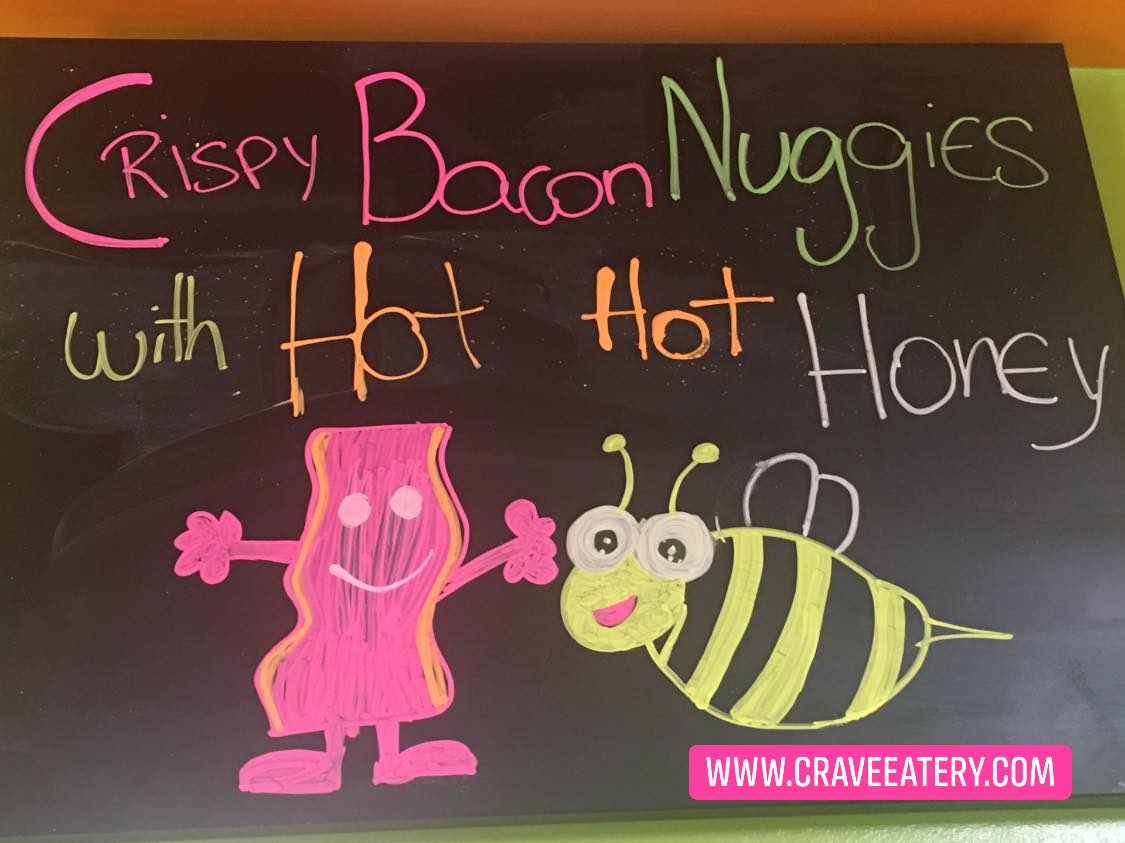 Crispy Bacon Nuggies
with Hot Hot Honey
WWW.CRAVEEATERY.COM